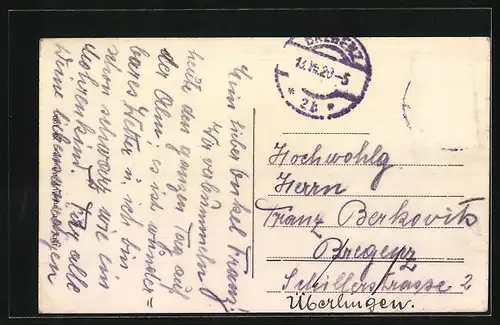 Mein lieber Onkel Franz!
Wir verbummeln
heute den ganzen Tag auf
der Alm; es ist wunder=
bares Wetter u. ich bin
schon schwarz wie ein
Mohrenkind. alle
BREGENZ
20-5
* 2b *
Hochwohlg
Herrn
Franz Berkovits
Bregenz
Schillerstrasse 2
Überlingen.